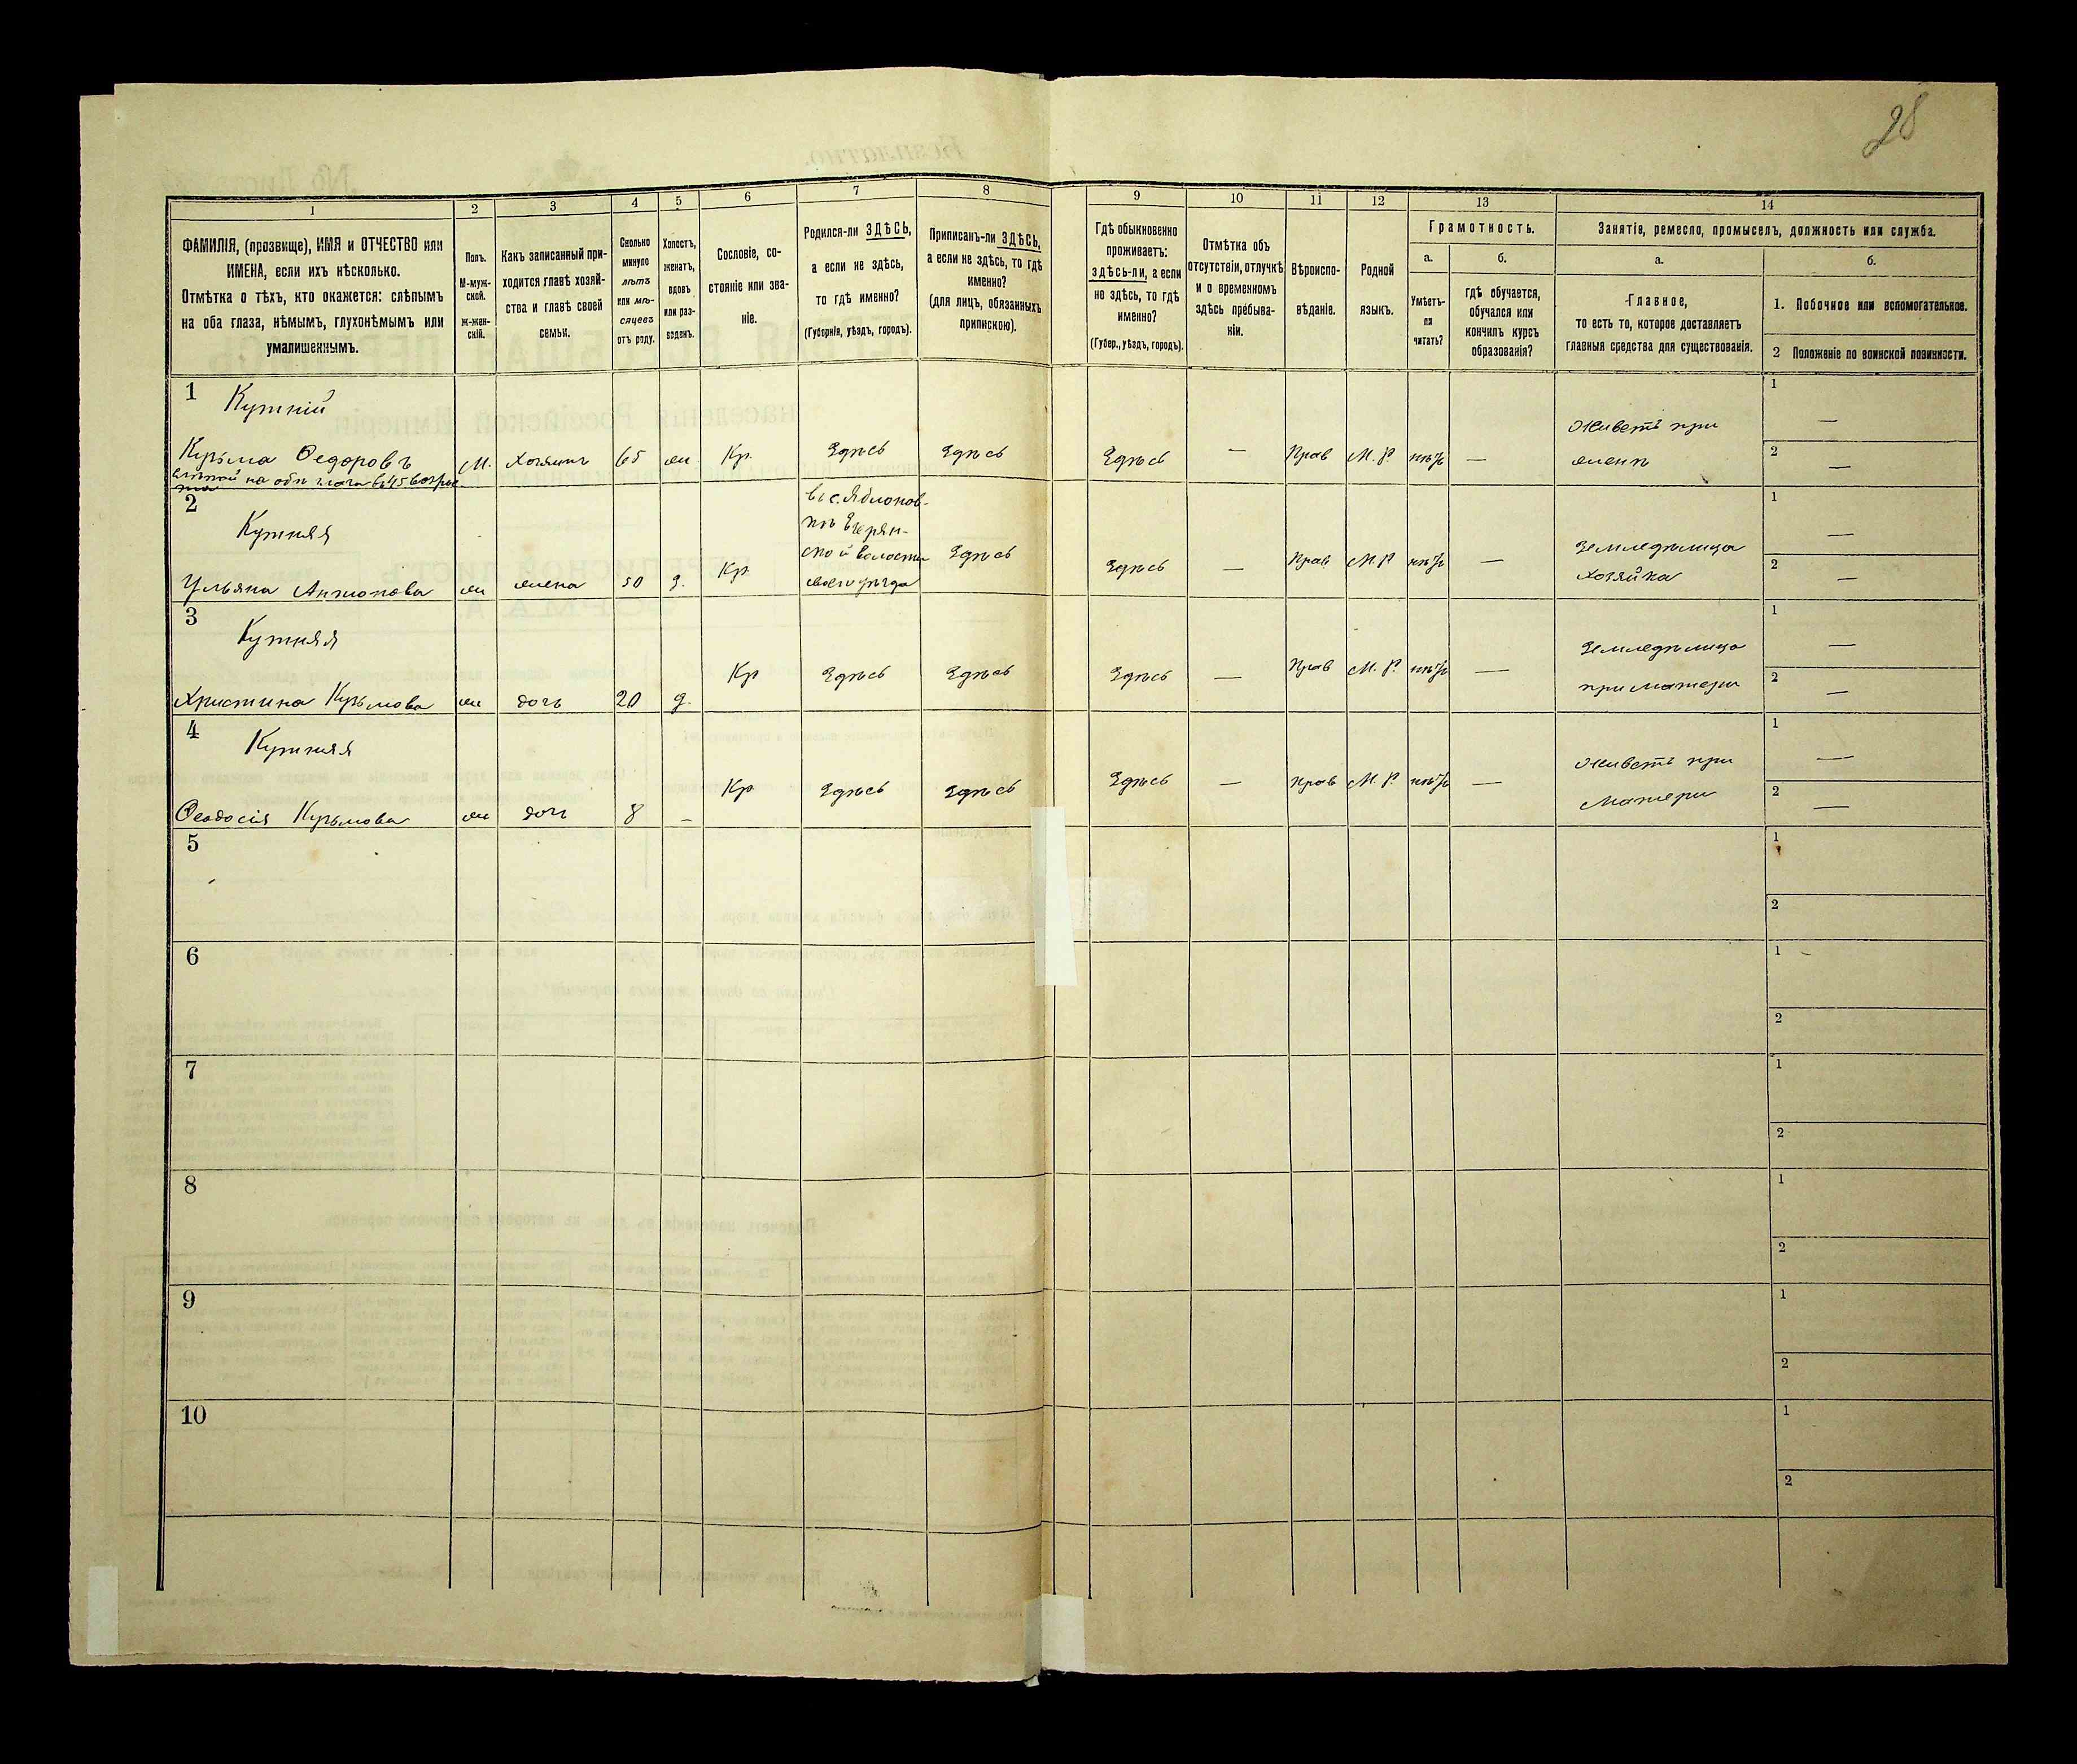 28
1
2
3
4
5
6
7
8
9
10
11
12
13
14
ФАМИЛІЯ, (прозвище), ИМЯ и ОТЧЕСТВО или
ИМЕНА, если ихъ нѣсколько.
Отмѣтка о тѣхъ, кто окажется: слѣпымъ
на оба глаза, нѣмымъ, глухонѣмымъ или
умалишеннымъ.
Полъ.
М-муж-
ской.
Ж-жен-
скій.
Какъ записанный при-
ходится главѣ хозяй-
ства и главѣ своей
семьи.
Сколько
минуло
лѣтъ
или мѣ-
сяцевъ
отъ роду.
Холостъ,
женатъ,
вдовъ
или раз-
веденъ.
Сословіе, со-
стояніе или зва-
ніе.
Родился-ли ЗДѢСЬ,
а если не здѣсь,
то гдѣ именно?
(Губернія, уѣздъ, городъ).
Приписанъ-ли ЗДѢСЬ,
а если не здѣсь, то гдѣ
именно?
(для лицъ, обязанныхъ
припискою).
Гдѣ обыкновенно
проживаетъ:
здѣсь-ли, а если
не здѣсь, то гдѣ
именно?
(Губер., уѣздъ, городъ).
Отмѣтка объ
отсутствіи, отлучкѣ
и о временномъ
здѣсь пребыва-
ніи.
Вѣроиспо-
вѣданіе.
Родной
языкъ.
Грамотность.
а.
Умѣетъ-
ли
читать?
б.
гдѣ обучается,
обучался или
кончилъ курсъ
образованія?
Занятіе, ремесло, промыселъ, должность или служба.
а.
Главное,
то есть то, которое доставляетъ
главныя средства для существованія.
б.
1. Побочное или вспомогательное.
2 Положеніе по воинской повинности.
1 Кутній
Кузьма Федоровъ М. Хозяинъ 65 ж. Кр. Здѣсь Здѣсь Здѣсь — Прав М. Р. нѣтъ — Живетъ при
женѣ
слѣпой на оба глаза
1 —
2 —
2 Кутняя
Ульяна Антонова ж жена 50 з. Кр
в с. Яблонов-
ской волости
своего уѣзда
Здѣсь Здѣсь — Прав М. Р нѣтъ — Земледѣлица
Хозяйка
1 —
2 —
3 Кутняя
Христина Кузьмова ж дочь 20 д. Кр Здѣсь Здѣсь Здѣсь — Прав М. Р. нѣтъ — Земледѣлица
при матери
1 —
2 —
4 Кутняя
Феодосія Кузьмова ж дочь 8 — Кр Здѣсь Здѣсь Здѣсь — Прав М. Р. нѣтъ — Живетъ при
матери
1 —
2 —
5
1
2
6
1
2
7
1
2
8
1
2
9
1
2
10
1
2